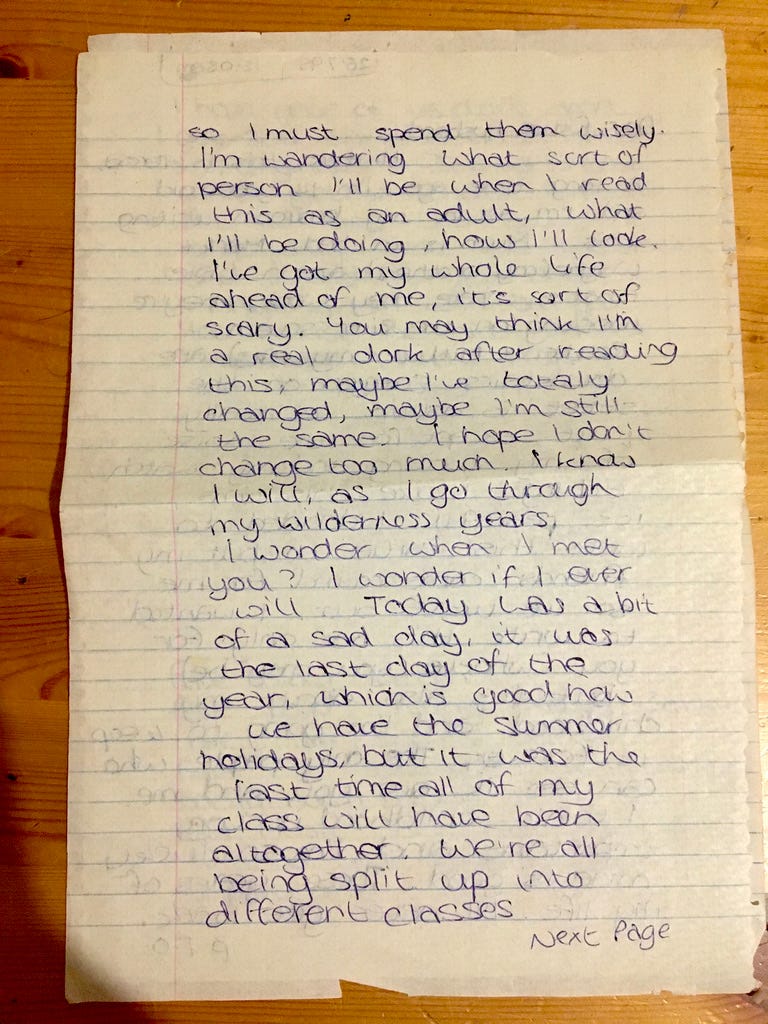 so I must spend them wisely.
I'm wandering what sort of
person I'll be when I read
this as an adult, what
I'll be doing, how I'll look.
I've got my whole life
ahead of me, it's sort of
scary. You may think I'm
a real dork after reading
this, maybe I've totaly
changed, maybe I'm still
the same. I hope I don't
change too much. I know
I will, as I go through
my wilderness years,
I wonder when I met
you? I wonder if I ever
will Today was a bit
of a sad day, it was
the last day of the
year, which is good now
we have the summer
holidays, but it was the
last time all of my
class will have been
altogether. We're all
being split up into
different classes
Next Page